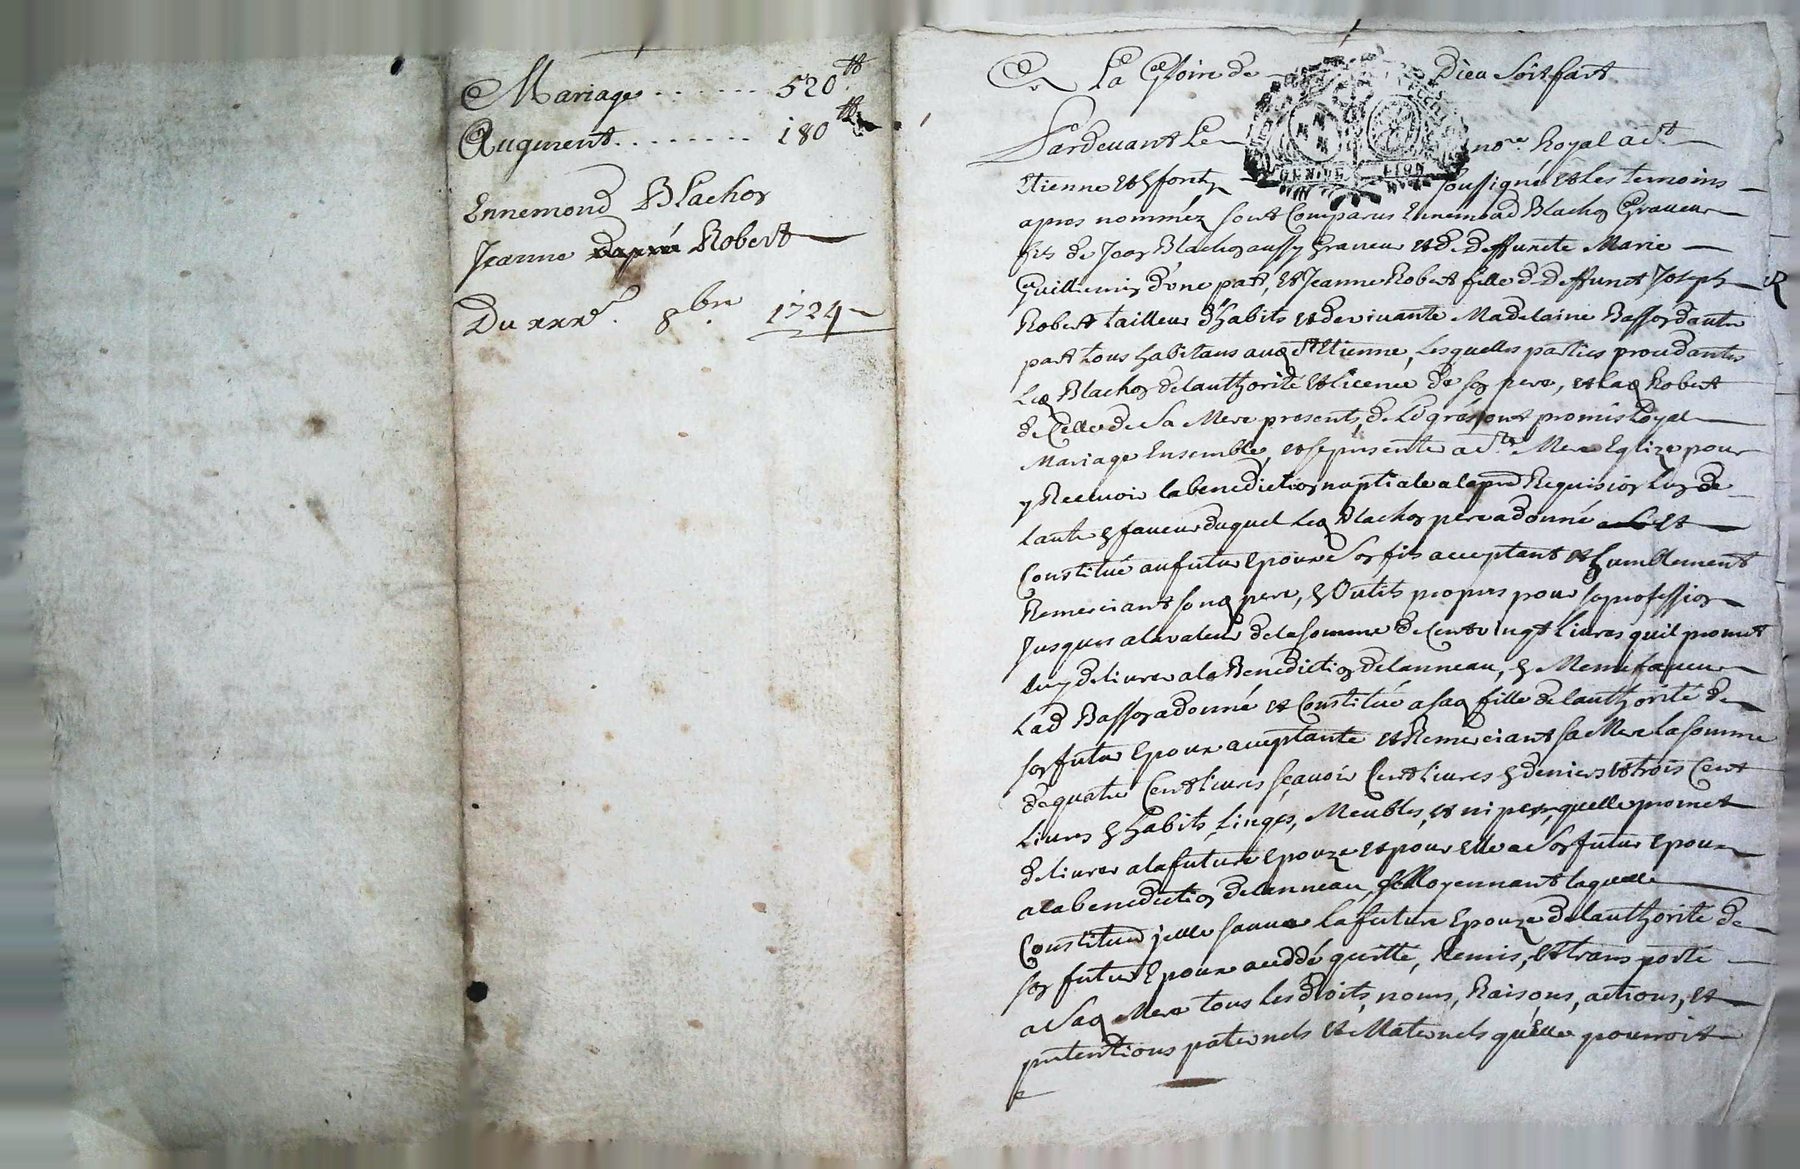 Mariage ....... 520 ₶
Augment ........ 180 ₶
Ennemond Blachon
Jeanne Robert
Du xxxe. 8bre 1724
A La Gloire de Dieu Soit fait
Pardevant Le nore. Royal a St
Etienne en forets soussigné et Les temoins
apres nomméz sont Comparus Ennemond Blachon Graveur
fils de Jean Blachon aussy graveur et de deffuncte Marie
Guillemin d'une part, et Jeanne Robert fille de deffunct Joseph
Robert tailleur d'habits et de vivante Madelaine Basson d'autre
part tous habitans aud St Etienne, Lesquelles parties procedantes
Led Blachon de l'authorité et licence de son pere, et lad Robert
de Celle de Sa Mere presents, de Leur gré, ont promis Loyal
Mariage Ensemble, et se presenter a Ste Mere Eglize pour
y Recevoir la benediction nuptiale a la pre Requision L'un de
L'autre en faveur duquel Led Blachon pere a donné et
Constitué au futur Epoux Son fils acceptant et humblement
Remerciant sond pere, en Outils propres pour sa profession
Jusques a la valeur de la somme de Cent vingt Livres quil promet
luy delivrer a la Benediction de l'anneau, en Meme faveur
Lad Basson a donné et Constitué a Sad fille de l'authorité de
son futur Epoux acceptante et Remerciant Sa Mere La somme
de quatre Cent livres sçavoir Cent livres en deniers et trois Cent
Livres en habits, Linges, Meubles, et nipes, quelle promet
delivrer a la future Epouze et pour Elle a Son futur Epoux
a la benediction de l'anneau, Moyennant laquelle
Constitution jcelle future Epouze de l'authorité de
son futur Epoux a ceddé quitté, Remis, et transporté
a Sad Mere tous Les droits, noms, Raisons, actions, et
pretentions paternels et Maternels qu'Elle pourroit
GENER LION